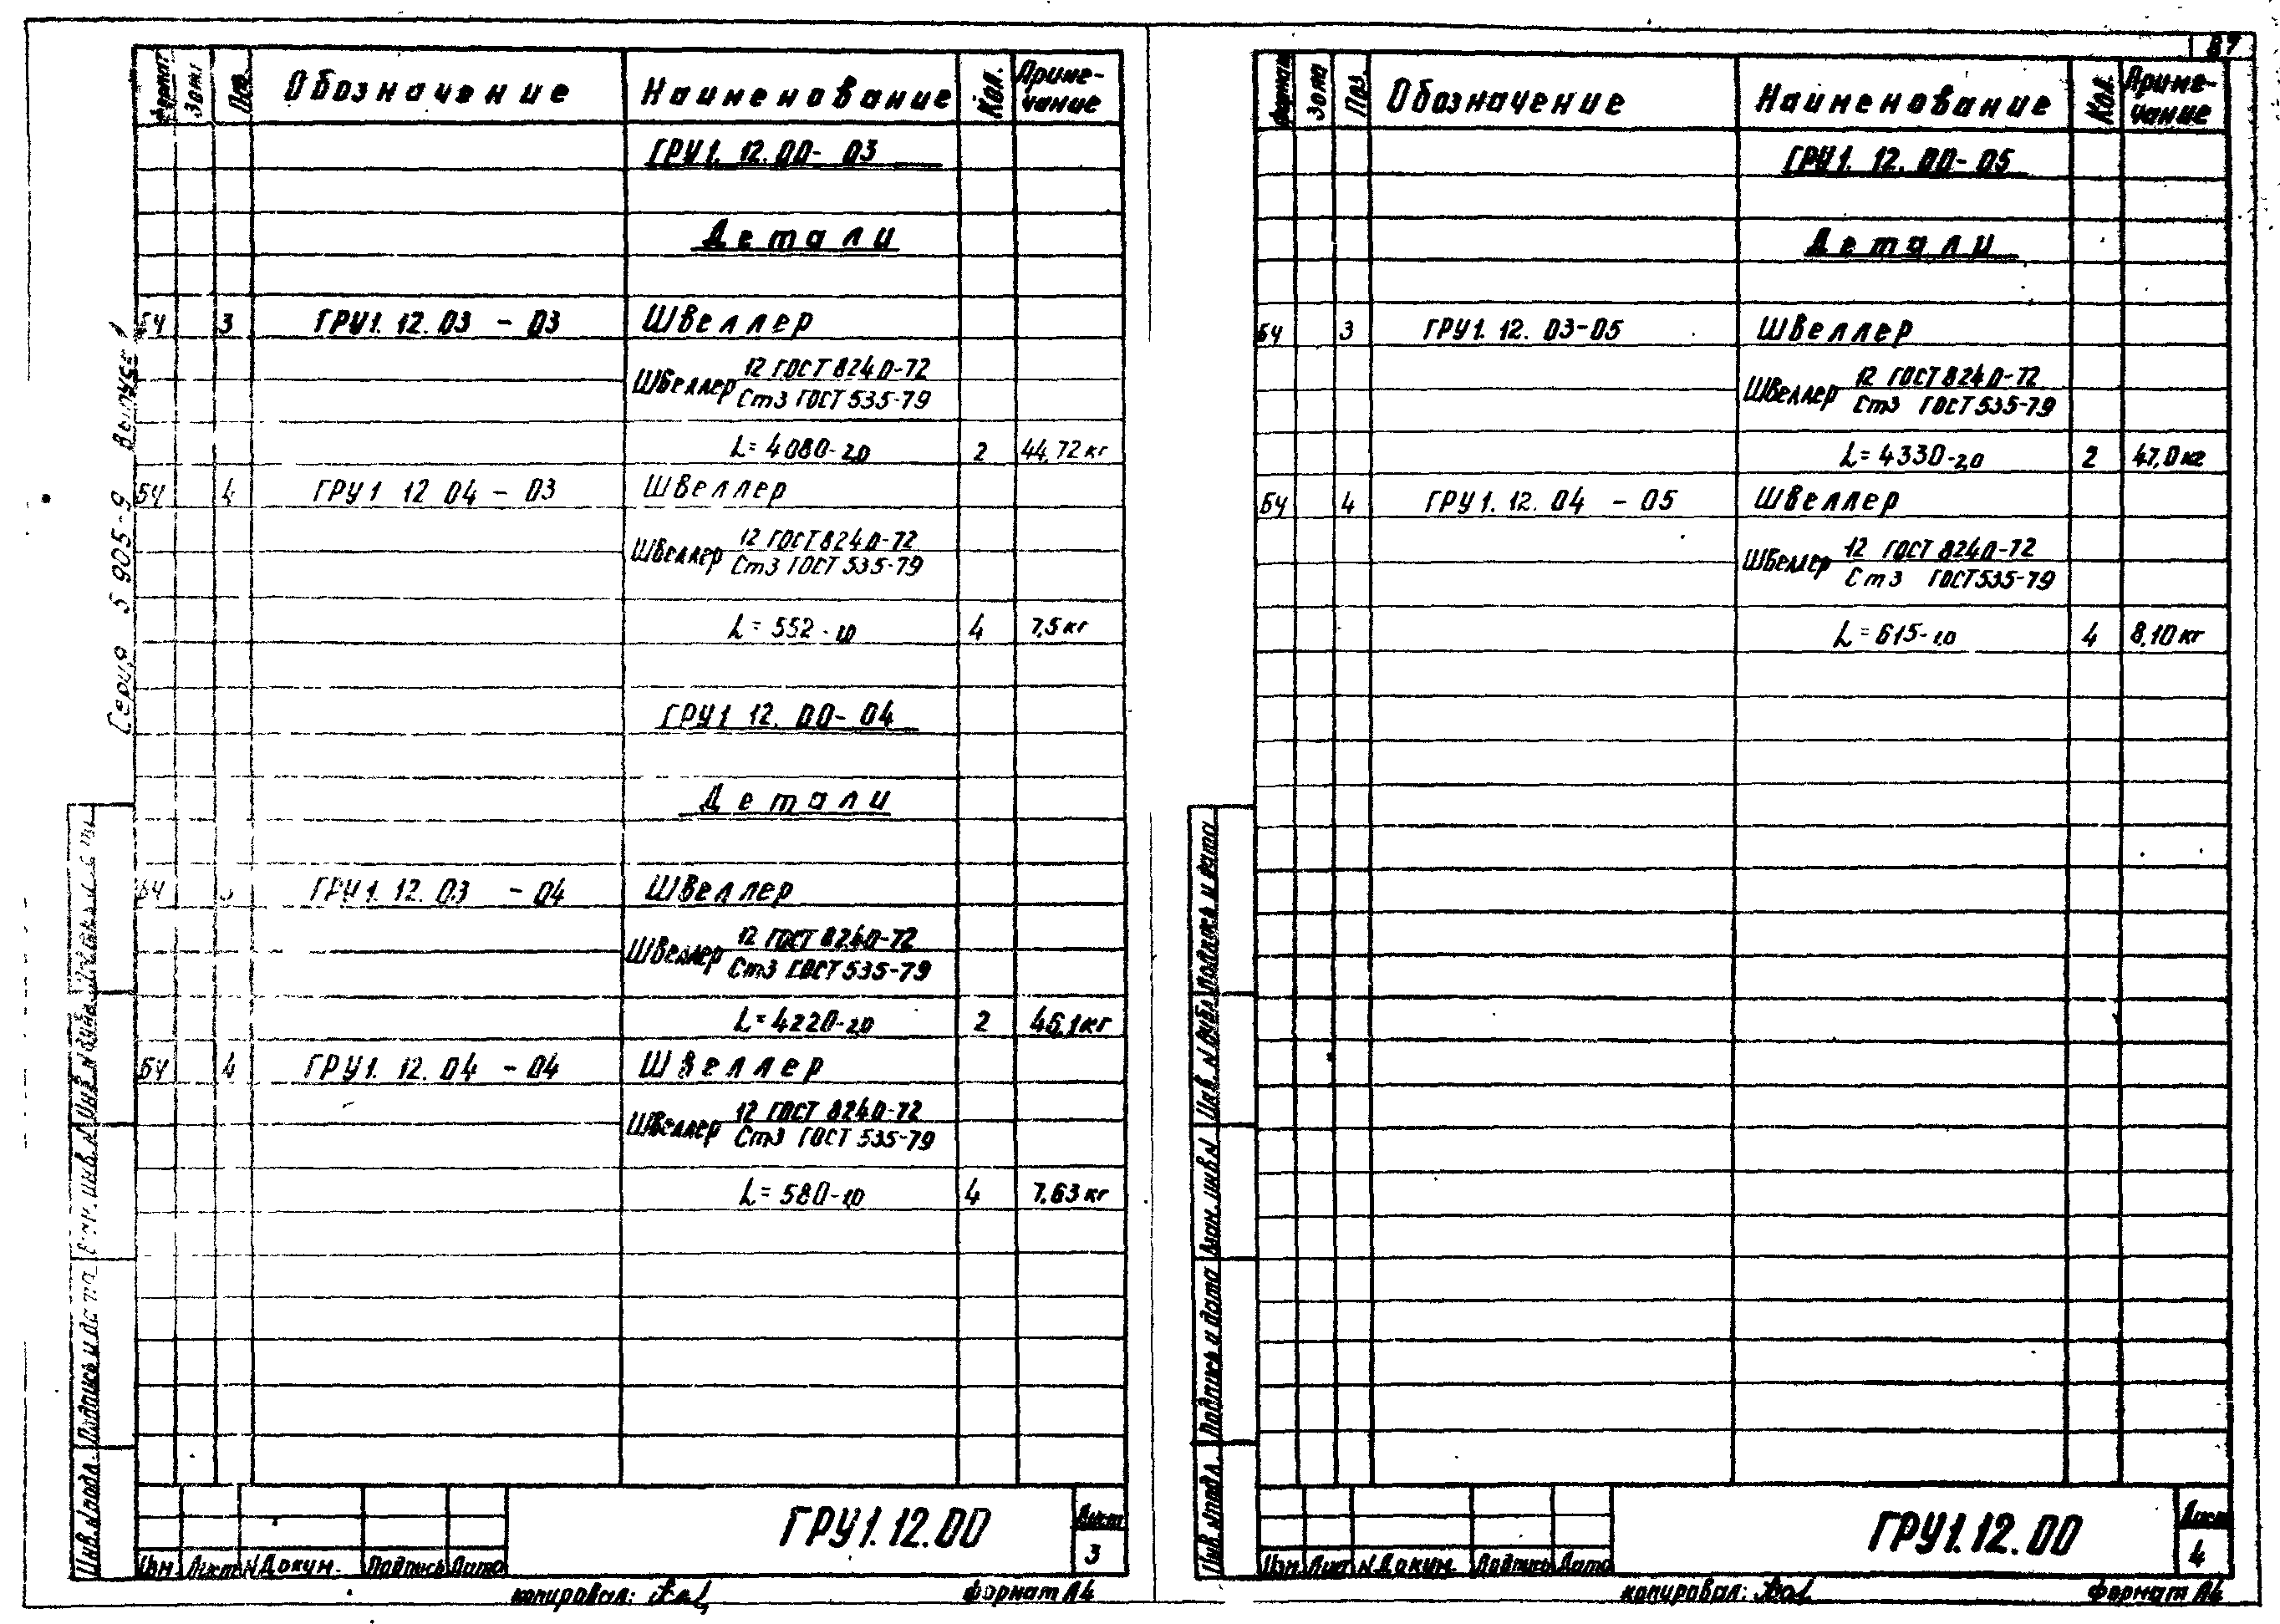 Серия 5 905-9 Выпуск 1
Формат Зона Поз. Обозначение Наименование Кол. Приме-
чание
ГРУ1. 12. 00- 03
Детали
БЧ 3 ГРУ1. 12. 03 - 03 Швеллер
Швеллер 12 ГОСТ 8240-72
Ст3 ГОСТ 535-79
L= 4080-2,0 2 44,72 кг
БЧ 4 ГРУ1 12 04 - 03 Швеллер
Швеллер 12 ГОСТ 8240-72
Ст3 ГОСТ 535-79
L= 552-1,0 4 7,5 кг
ГРУ1 12. 00- 04
Детали
БЧ ГРУ1. 12. 03 - 04 Швеллер
Швеллер 12 ГОСТ 8240-72
Ст3 ГОСТ 535-79
L= 4220-2,0 2 46,1 кг
БЧ 4 ГРУ1. 12. 04 - 04 Швеллер
Швеллер 12 ГОСТ 8240-72
Ст3 ГОСТ 535-79
L= 580-1,0 4 7.63 кг
Инв. N подл. Подпись и дата Взам. инв. N Инв. N дубл. Подпись и дата
Изм Лист N Докум. Подпись Дата
ГРУ1. 12. 00
Лист
3
копировал: формат А4
67
Формат Зона Поз. Обозначение Наименование Кол. Приме-
чание
ГРУ1. 12. 00- 05
Детали
БЧ 3 ГРУ1. 12. 03-05 Швеллер
Швеллер 12 ГОСТ 8240-72
Ст3 ГОСТ 535-79
L= 4330-2,0 2 47,0 кг
БЧ 4 ГРУ1. 12. 04 - 05 Швеллер
Швеллер 12 ГОСТ 8240-72
Ст3 ГОСТ 535-79
L= 615-1,0 4 8,10 кг
Инв. N подл. Подпись и дата Взам. инв. N Инв. N дубл. Подпись и дата
Изм Лист N Докум. Подпись Дата
ГРУ1. 12. 00
Лист
4
копировал: формат А4